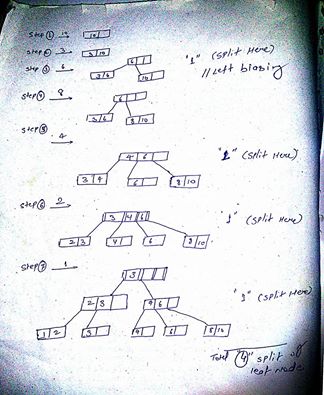 Step ① 10 → 10
Step ② 3 → 3 10
Step ③ 6 → 6
3 6 10
"1" (split Here)
// left biasing
Step ④ 8 → 6
3 6 8 10
Step ⑤ 4 → 4 6
3 4 6 8 10
"1" (split Here)
Step ⑥ 2 → 3 4 6
2 3 4 6 8 10
1 (split Here)
Step ⑦ 1 → 3
2 3 4 6
1 2 3 4 6 8 10
"1" (split Here)
Total "4" split of
leaf node